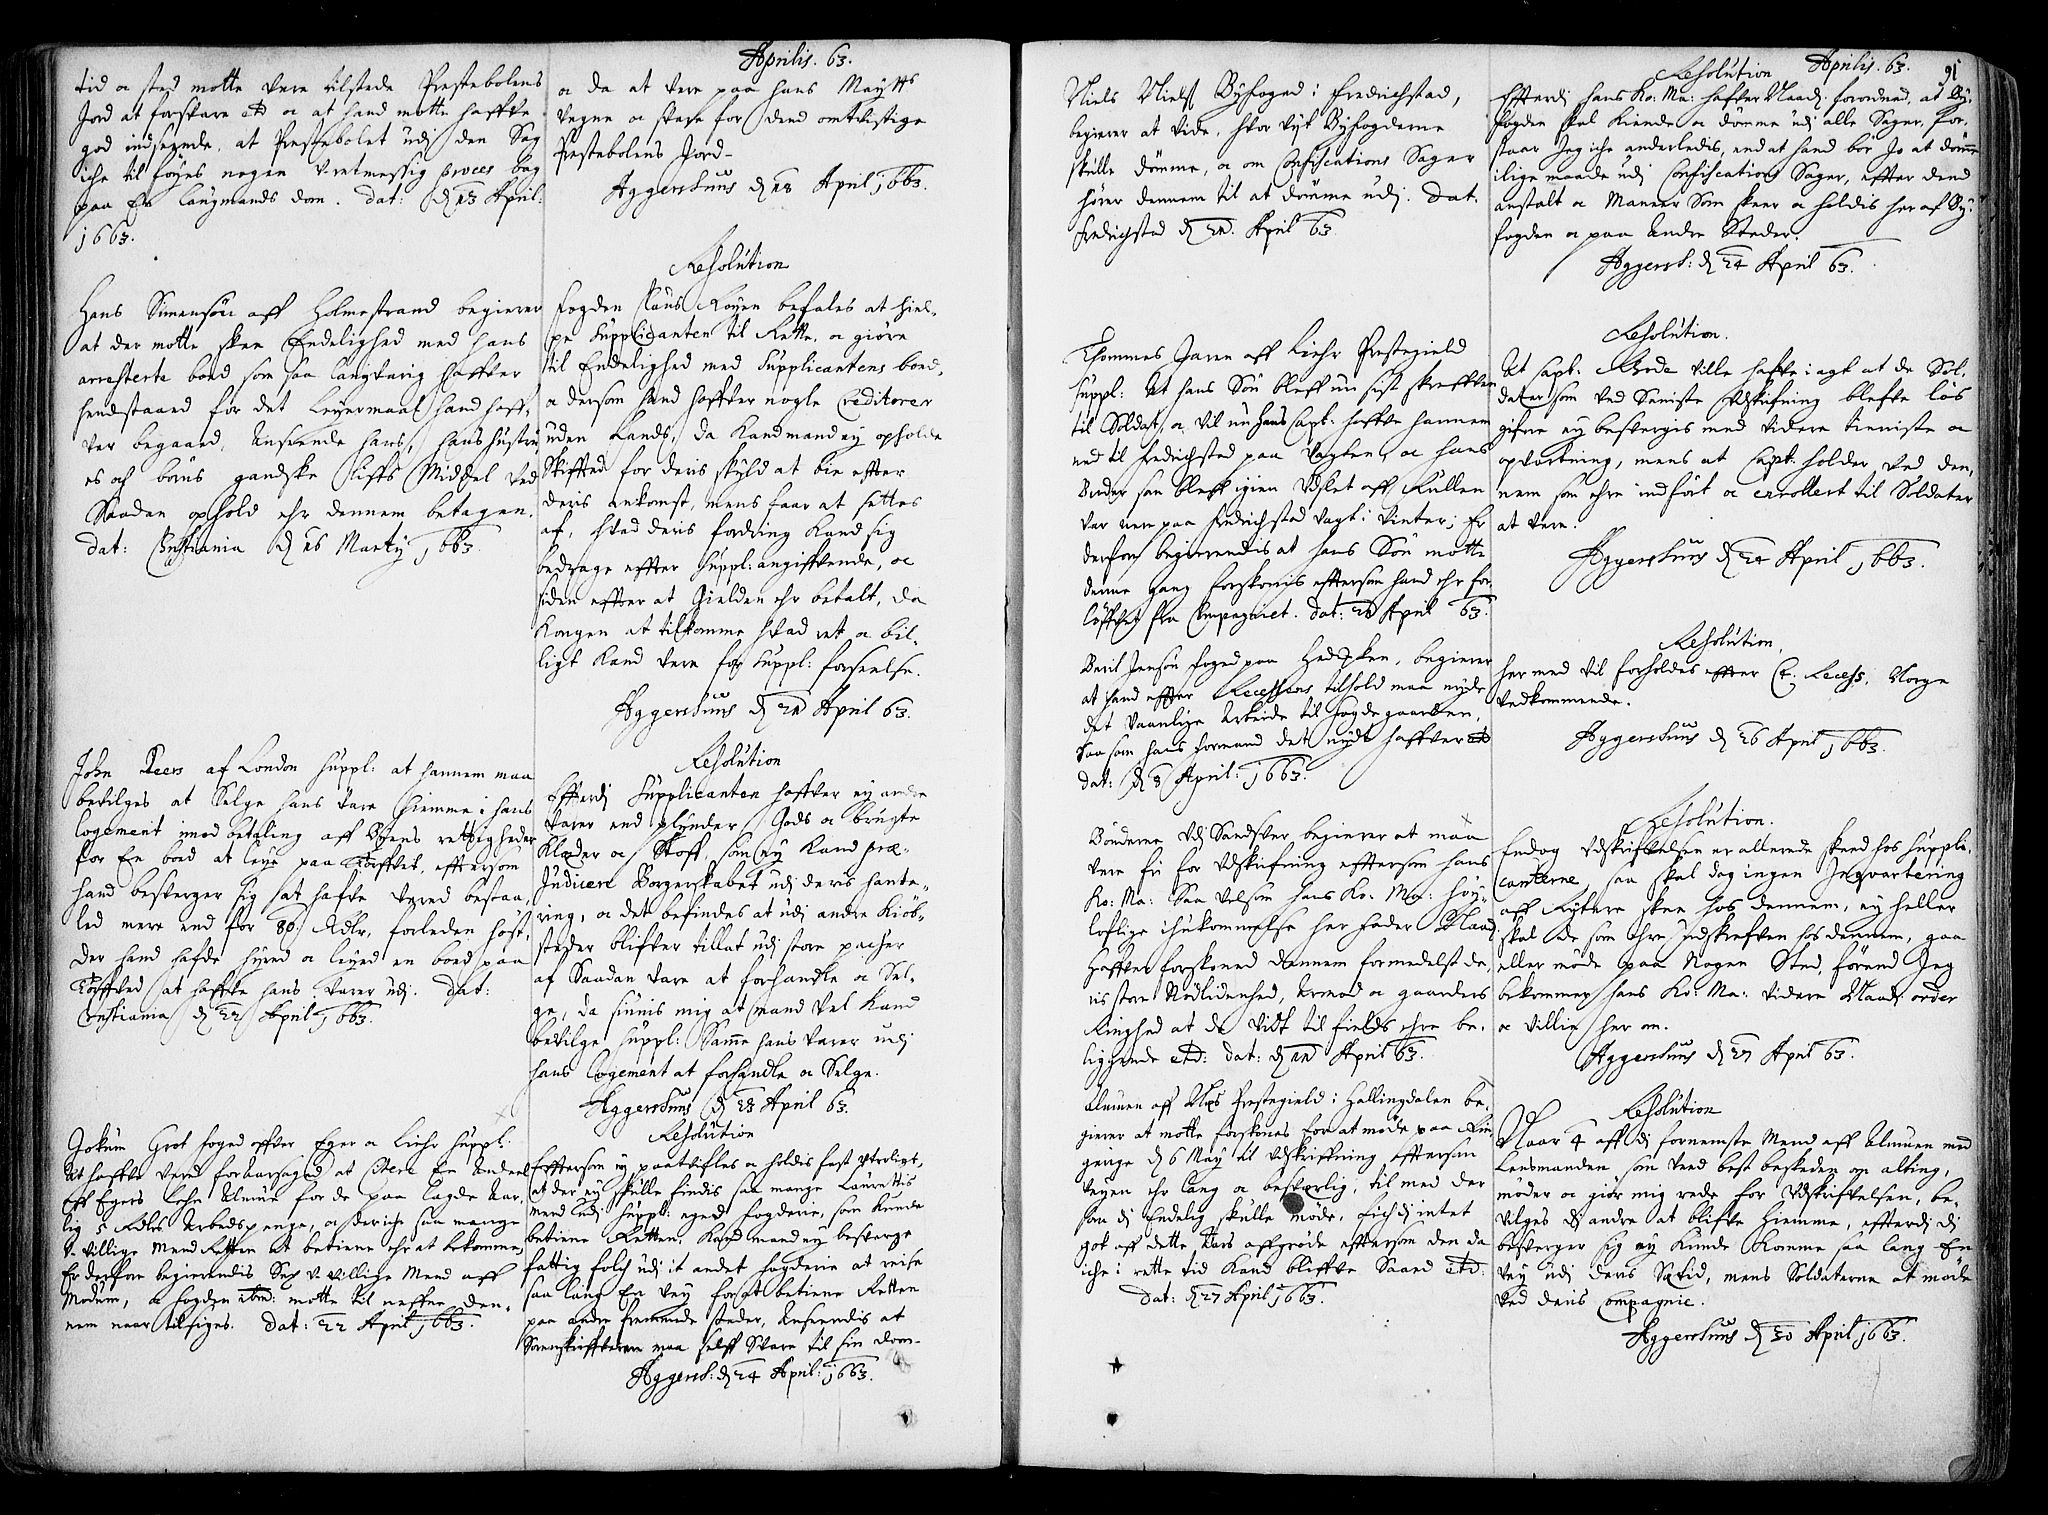 Aprilis. 63.
tid og sted motte vere tilstede Prestebolens
Jord at forsvare etc og at hand motte haffve
god indseende, at Prestebolet udj den Sag
iche til føyes nogen Uretmessig proces bag
paa En Laugmands dom. Dat: d 13 April:
1663.
Hans Simensøn aff Holmestrand begierer
at der motte skee Endelighed med hans
arresterte boed som saa langvarig haffver
hendstaaed for det Leyermaal hand haff-
ver begaaed, Anseende hans, hans hustru
es och børns gandske Liffs Middel ved
Saadan ophold ehr dennem betagen.
Dat: Christiania d 16 Marty 1663.
John Peers af London Suppl: at hannem maa
bevilges at Selge hans Vare hiemme i hans
Logement imod betaling aff Byens rettigheder
for En boed at leye paa Torffvet, eftersom
hand besverger sig at hafve vered bestaa-
led mere end for 80 Rdlr, forleden høst,
der hand hafde hyred og leyed en boed paa
Torffved at haffve hans Varer udj. Dat:
Christiania d 22 April 1663.
Jokum Grot foged offver Eger og Liehr Suppl:
At haffve vered foraarsaged at citere En andeel
aff Egers Lehn Almue for de paa lagde Aar-
lig 5 Rdlrs Arbedspenge, og der iche saa mange
U-villige Mend Retten at betiene ehr at bekomme
Er derfore begierendis Sex U-villige Mend aff
Modum, og fogden ibid: motte til neffne den-
nem naar tilsiges. Dat: 22 April 1663.
og da at vere paa hans Maytts
Vegne og svare for dend omtvistige
Prestebolens Jord-
Aggershuus d 18 April 1663.
Resolution
fogden Claus Røyen befales at hiel-
pe Supplicanten til Rette, og giøre
til Endelighed med Supplicantens boed,
og dersom hand haffver nogle Creditorer
uden Lands, da Kand mand ey opholde
Skifftet for deris skyld at bie effter
deris ankomst, mens faar at settes
af, hvad deris fordring Kand sig
bedrage effter Suppl: angiffvende, og
siden effter at Gielden ehr betalt, da
Kongen at tilkomme hvad ret og bil-
ligt Kand vere for Suppl: forseelse.
Aggershuus d 21 April 63.
Resolution
Efterdj Supplicanten haffver ey andre
Varer end plynder Gods og brugte
Klæder og Stoff, som ey Kand præ-
Judicere Borgerskabet udj deris hante-
ring, og det befindes at udj andre Kiøb-
steder blifver tillat udj store pacher
af Saadan Vare at forhandle og Sel-
ge, da siunis mig at mand vel Kand
bevilge Suppl: Samme hans Varer udj
hans Logement at forhandle og Selge.
Aggershuus d 23 April 63.
Resolution
Efftersom ey paatvifles og holdis fast Utroligt,
at der ey skulle findis saa mange Laurettis
mend udj Suppl: eget fogderie, som Kunde
betiene Retten, Kand mand ey besverge
fattig folch udj it andet fogderie at reise
saa lang En vey forgt betiene Retten
paa andre fremmede steder, Anseendis at
Sorenskriffveren maa self Svare til sin dom-
Aggersh: d 24 April: 1663.
Aprilis. 63.
91
Niels Nielss Byfoged i fredrichstad,
begierer at Vide, hvor vit Byfogderne
skulle dømme, og om Confiscations Sager
hører dennem til at dømme udj. Dat.
fredrichstad d 21. April 63.
Thommes Jaren aff Liehr Prestegield
Suppl: At hans Søn bleff nu sist skreffven
til Soldat, og vil nu hans Capt: haffve hannem
ned til fredrichstad paa Vagten, og hans
Broder som bleff igien Udslet aff Rullen
var nere paa fredrichstad vagt i Vinter; Er
derfore begierendis at hans Søn motte
denne gang forskonis efftersom hand ehr for-
løffvet fra Compagniet. Dat: 21 April 63.
Bertil Jensøn foged paa Hedemarken, begierer
at hand effter Recessens tilhold maa nyde
det vaanlige Arbeide til fogdegaarden,
saa som hans formand det nydt haffver etc
Dat: d 8 April: 1663.
Bønderne Udj Sandsver begierer at maa
vere fri for Udskrifning efftersom hans
Ko: Ma: saa velsom hans Ko: Ma: høy-
loflige ihukommelse her fader Naad:
Haffver forskoned dennem formedelst de-
ris store Nødlidenhed, Armod og gaarders
Ringhed at de vidt til fields ehre be-
liggende etc: Dat: d 11 April 63.
Almuen aff Næs Prestegield i Hallingdalen be-
gierer at motte forskones for at møde paa Rin-
gerige d 6 May til Udskrifning efftersom
veyen ehr lang og besverlig, til med der
som di Endelig skulle møde, fich di intet
got aff dette Aars affgrøde efftersom den da
iche i rette tid Kand bliffve Saaed etc:
Dat: d 27 April 1663.
Resolution
Efterdj hans Ko: Ma: hafver Naadj forordned, at By-
fogden skal Kiende og dømme udj alle Sager, for-
staar Jeg iche anderledis, end at hand bør Jo at dømme
i lige maade udj Confiscations Sager, effter dend
anstalt og Maneer som skeer og holdis her af By-
fogden og paa Andre Steder.
Aggersh: d 24 April 63.
Resolution.
At Capt: Rhode ville hafve i agt at de Sol-
dater som ved Seniste Udskrifning blefve løs
gifne ey besvergis med videre tieniste og
opvartning, mens at Capt: holder ved den-
nem som ehre indført og enrollert til Soldater
at vere.
Aggershuus d 24 April 1663.
Resolution,
her med vil forholdes effter Chr: Recess, Norge
vedkommende.
Aggershuus d 26 April 1663.
Resolution.
Endog Udskrifvelsen er allerede skeed hos Suppli-
canterne, saa skal dog ingen Inqvartering
aff Rytere skee hos dennem, ey heller
skal de som ehre Indskrefven hos dennem, gaa
eller møde paa Nogen Sted, førend Jeg
bekommer hans Ko: Ma: videre Naads order
og villie her om.
Aggershuus d 27 April 63.
Resolution
Naar 4 aff di fornemste Mend aff Almuen med
Lensmanden som veed best beskeden om alting,
møder og giør mig rede for Udskrifvelsen, be-
vilges di andre at blifve hiemme, efterdj di
besverger sig ey Kunde Komme saa lang En
vey udj deris Sætid, mens Soldaterne at møde
ved deris Compagnie.
Aggershuus d 30 April 1663.